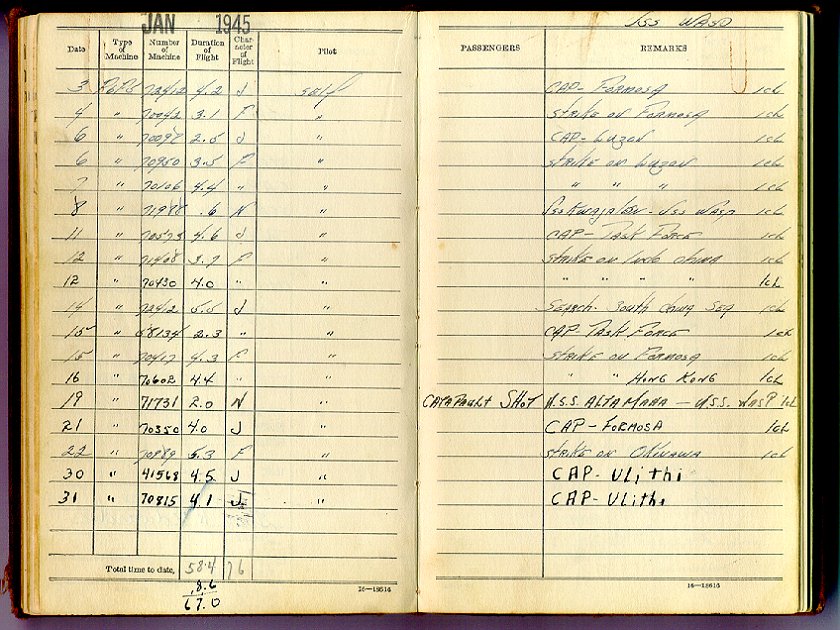 JAN 1945
USS WASP
Date Type of Machine Number of Machine Duration of Flight Character of Flight Pilot PASSENGERS REMARKS
3 F6F5 72412 4.2 J self CAP - FORMOSA 1ch
4 " 70042 3.1 F " STRIKE ON FORMOSA 1ch
6 " 2.5 J " CAP - LUZON 1ch
6 " 70950 3.5 F " STRIKE ON LUZON 1ch
7 " 70106 4.4 " " " " " 1ch
8 " .6 N " - USS WASP 1ch
11 " 70573 4.6 J " CAP - TASK FORCE 1ch
12 " 71408 3.7 F " STRIKE ON INDO CHINA 1ch
12 " 70430 4.0 " " " " " " 1ch
14 " 72412 5.5 J " SEARCH - SOUTH CHINA SEA 1ch
15 " 58134 2.3 " " CAP - TASK FORCE 1ch
15 " 70417 4.3 F " STRIKE ON FORMOSA 1ch
16 " 70602 4.4 " " " " HONG KONG 1ch
19 " 71731 2.0 N " CATAPAULT SHOT U.S.S. ALTAMAHA - U.S.S. WASP 1ch
21 " 70350 4.0 J " CAP - FORMOSA 1ch
22 " 70989 5.3 F " STRIKE ON OKINAWA 1ch
30 " 41568 4.5 J " CAP - ULithi
31 " 70815 4.1 J " CAP - ULithi
Total time to date, 58.4 76
8.6
67.0
16—18516 16—18516